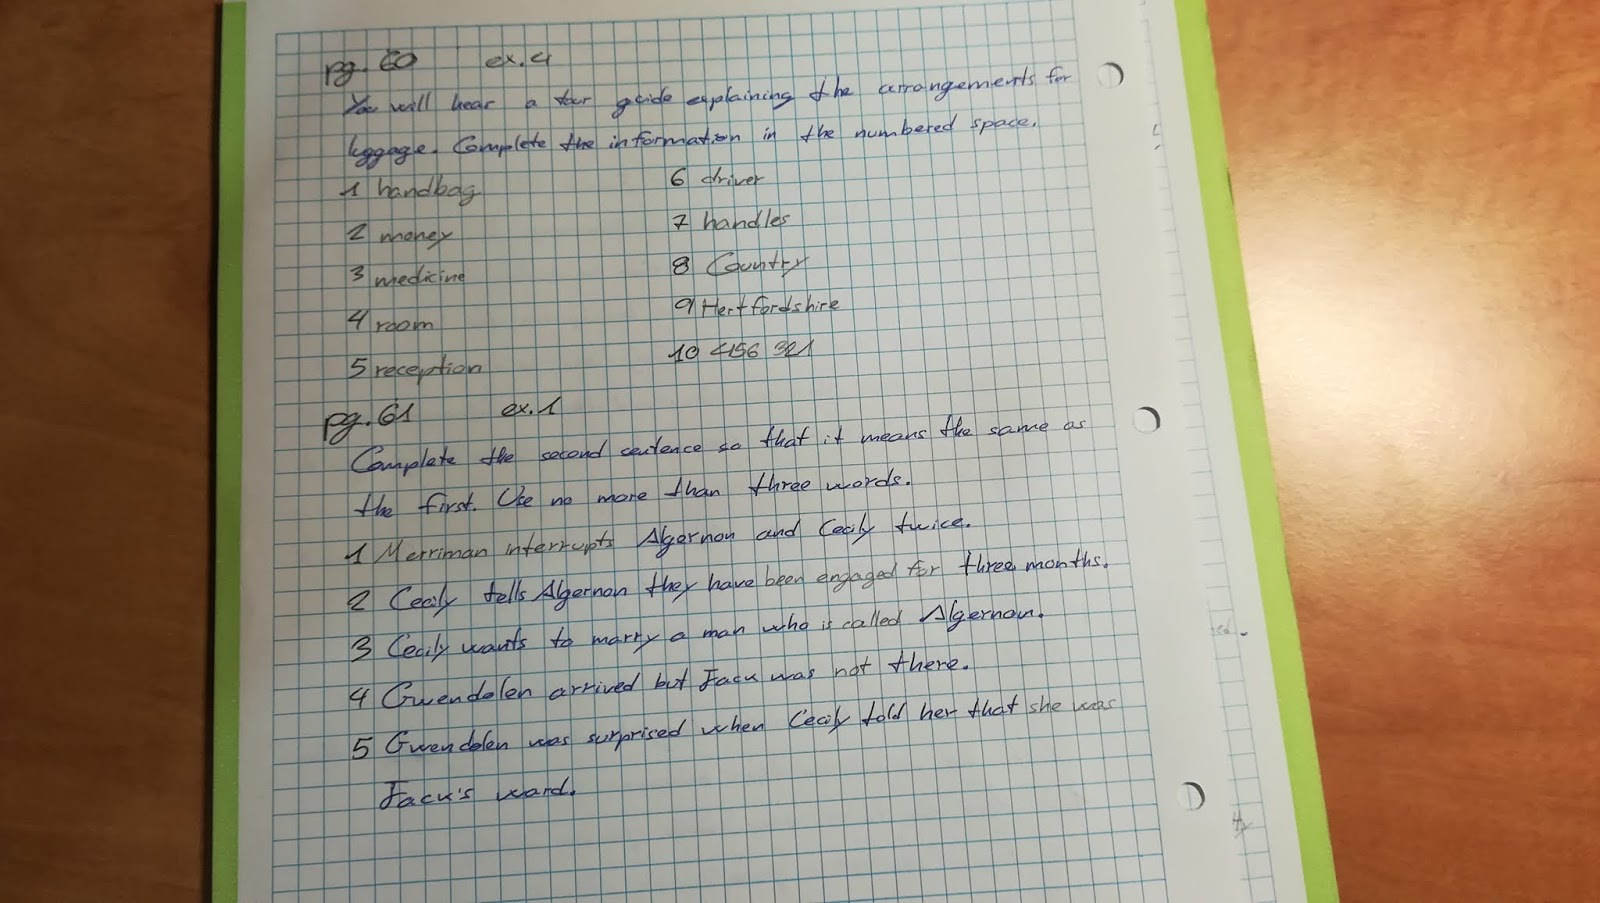 pg. 60 ex. 4
You will hear a tour guide explaining the arrangements for
luggage. Complete the information in the numbered space.
1 handbag 6 driver
2 money 7 handles
3 medicine 8 Country
4 room 9 Hertfordshire
5 reception 10 456 321
pg. 61 ex. 1
Complete the second sentence so that it means the same as
the first. Use no more than three words.
1 Merriman interrupts Algernon and Cecily twice.
2 Cecily tells Algernon they have been engaged for three months.
3 Cecily wants to marry a man who is called Algernon.
4 Gwendolen arrived but Jack was not there.
5 Gwendolen was surprised when Cecily told her that she was
Jack's ward.